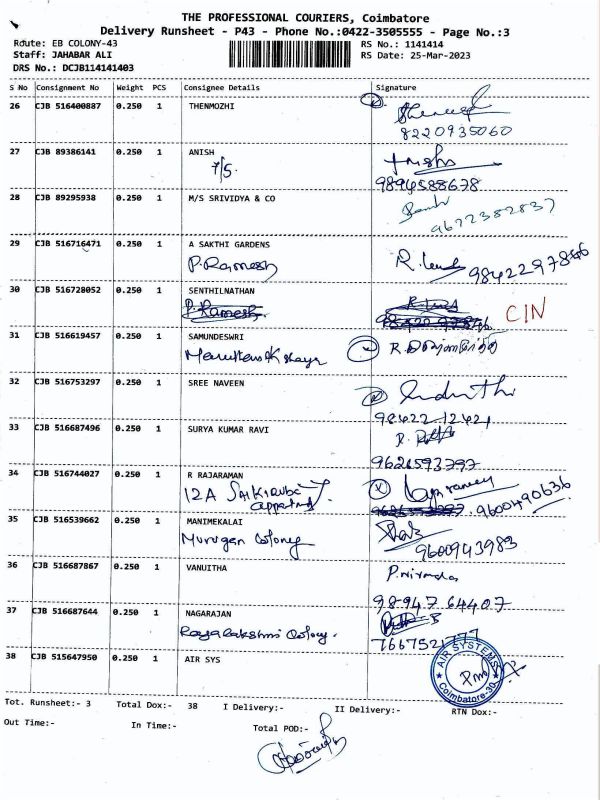 THE PROFESSIONAL COURIERS, Coimbatore
Delivery Runsheet - P43 - Phone No.:0422-3505555 - Page No.:3
Route: EB COLONY-43
RS No.: 1141414
Staff: JAHABAR ALI
RS Date: 25-Mar-2023
DRS No.: DCJB114141403
S No Consignment No Weight PCS Consignee Details Signature
26 CJB 516400887 0.250 1 THENMOZHI
8220935060
27 CJB 89386141 0.250 1 ANISH
7/5.
9894588678
28 CJB 89295938 0.250 1 M/S SRIVIDYA & CO
9672382837
29 CJB 516716471 0.250 1 A SAKTHI GARDENS
P. Ramesh
9842297846
30 CJB 516728052 0.250 1 SENTHILNATHAN
P. Ramesh
CIN
31 CJB 516619457 0.250 1 SAMUNDESWRI
32 CJB 516753297 0.250 1 SREE NAVEEN
98422-12421
33 CJB 516687496 0.250 1 SURYA KUMAR RAVI
9626593797
34 CJB 516744027 0.250 1 R RAJARAMAN
12A
9600490636
35 CJB 516539662 0.250 1 MANIMEKALAI
Murugan Colony
9600943983
36 CJB 516687867 0.250 1 VANUITHA
P. Nirmala
98947 64407
37 CJB 516687644 0.250 1 NAGARAJAN
Rajalakshmi Colony.
7667521777
38 CJB 515647950 0.250 1 AIR SYS
AIR SYSTEMS
Coimbatore-30
Tot. Runsheet:- 3 Total Dox:- 38 I Delivery:- II Delivery:- RTN Dox:-
Out Time:- In Time:- Total POD:-